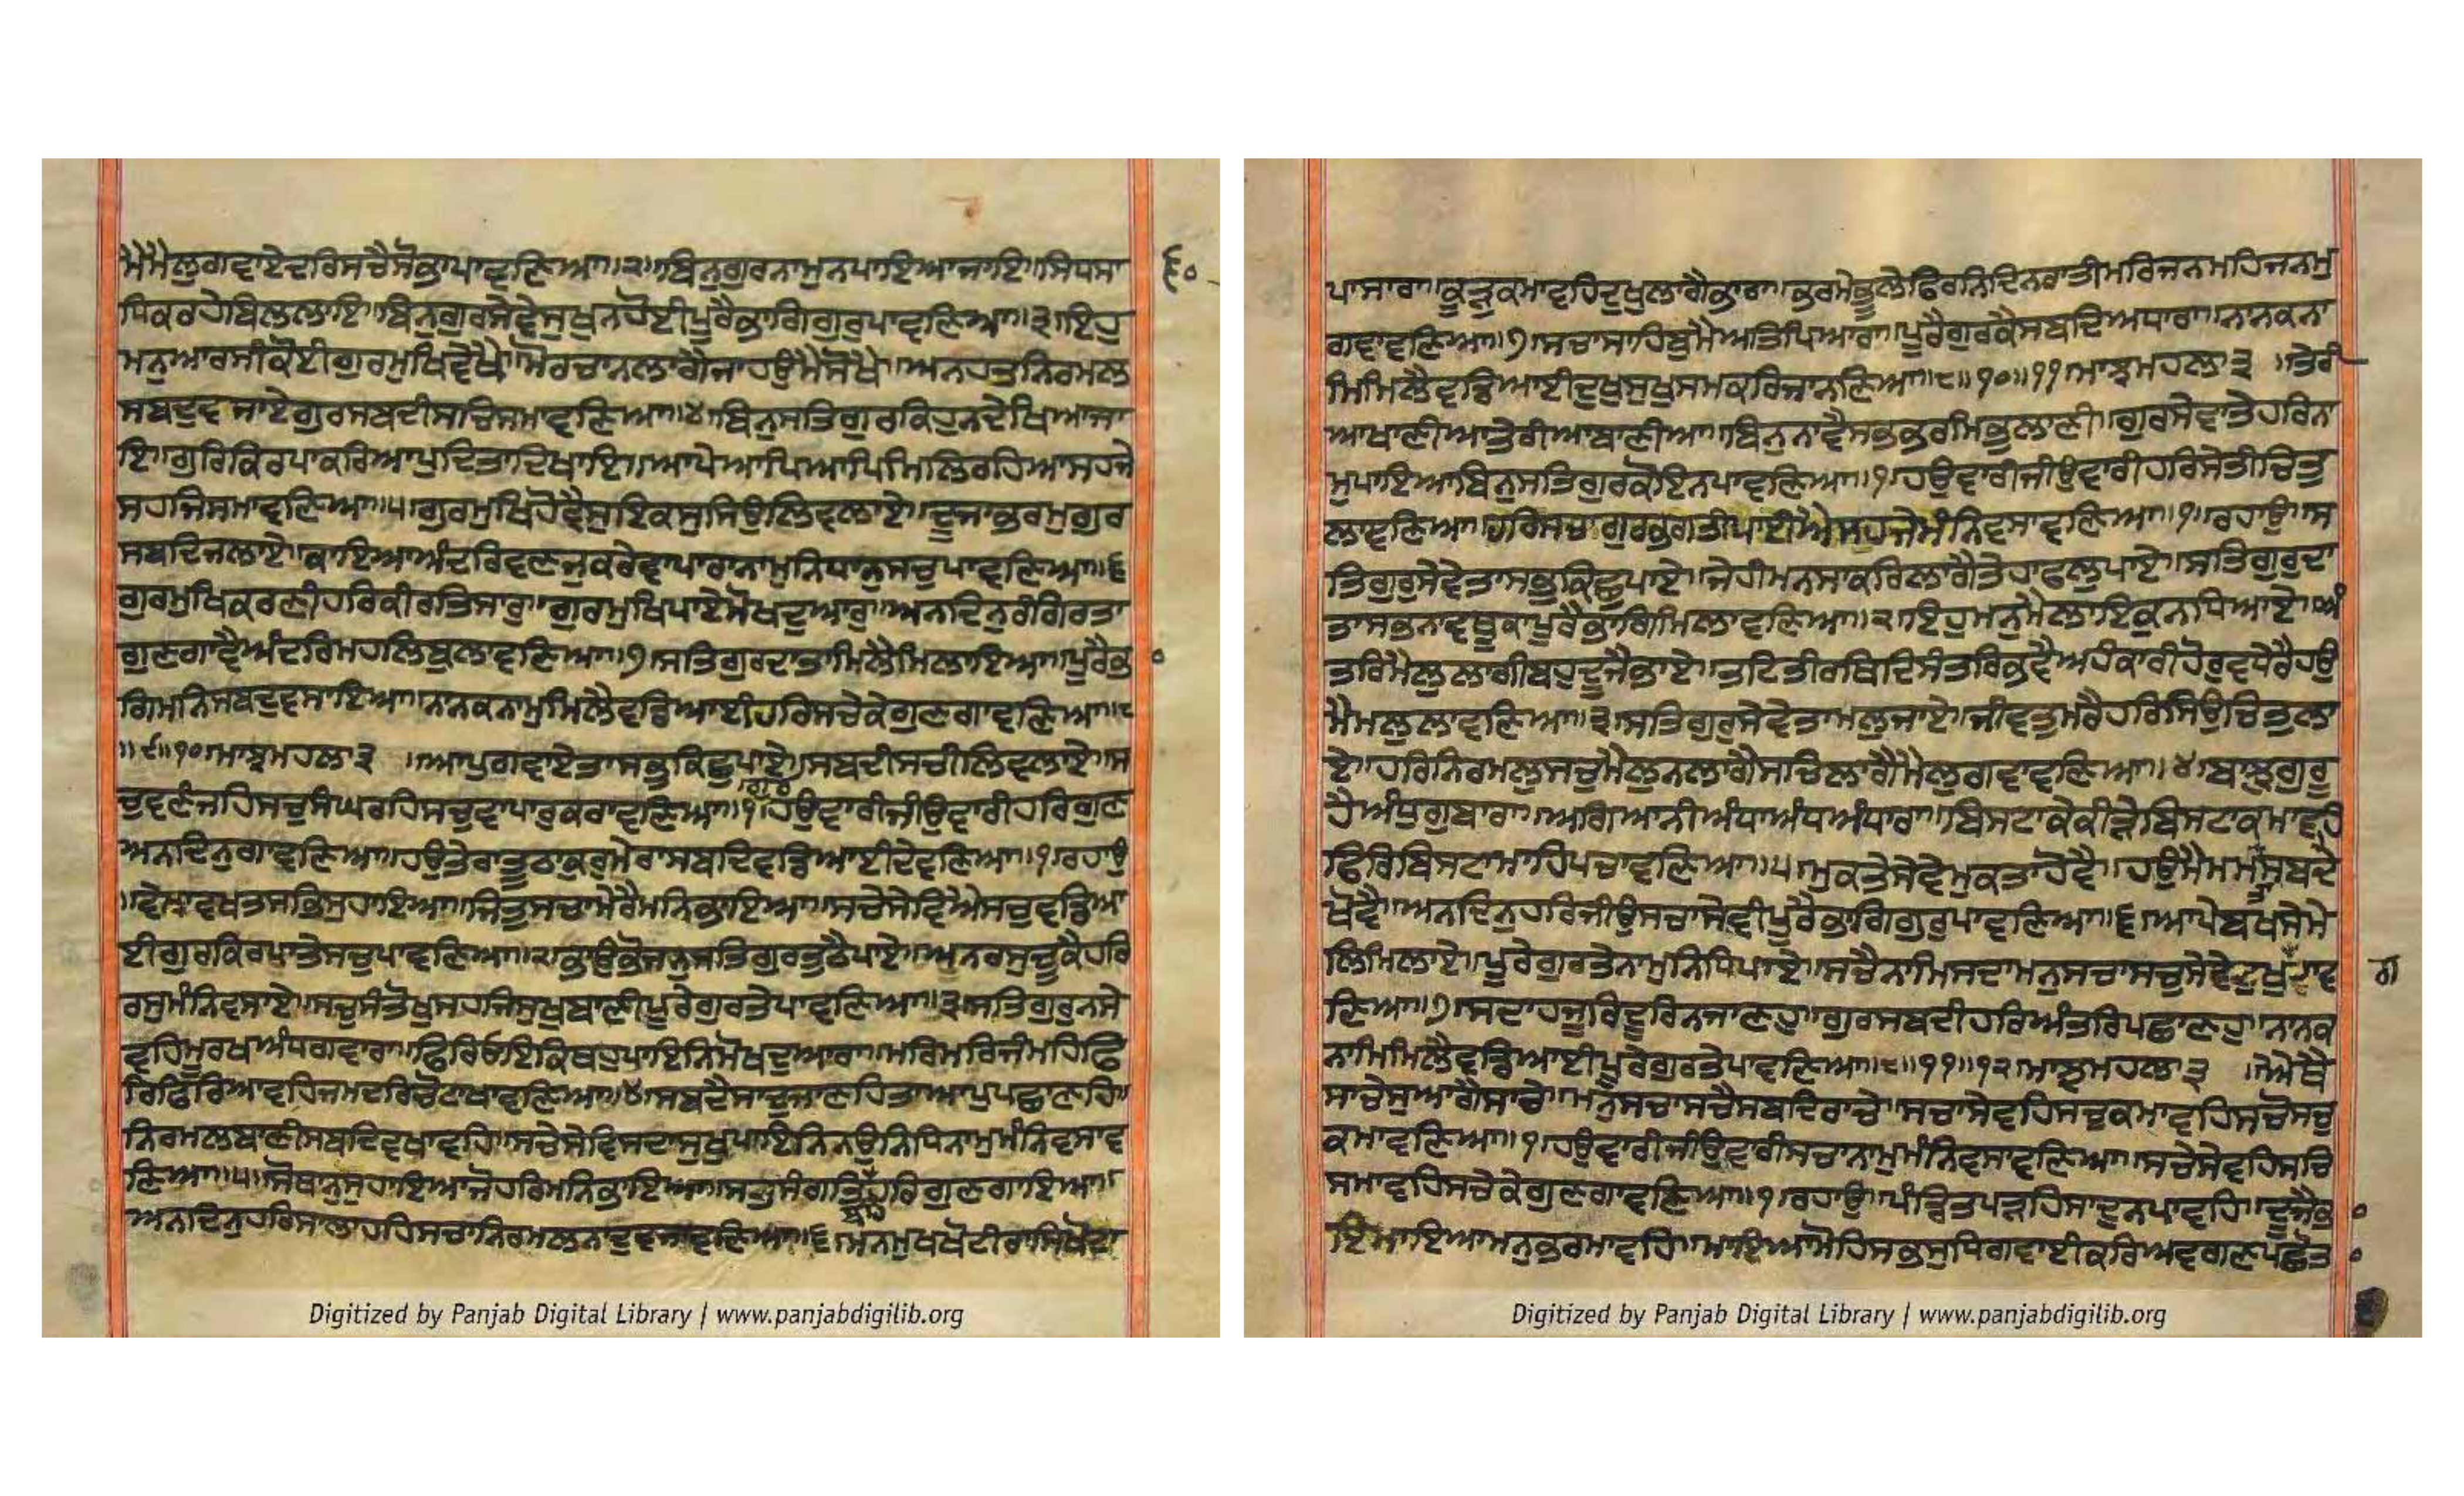 ਮੈਮੈਲੁਗਵਾਏਦਰਿਸਚੈਸੋਭਾਪਾਵਣਿਆ॥੨॥ਬਿਨੁਗੁਰਨਾਮੁਨਪਾਇਆਜਾਇ॥ਸਿਧਸਾ
ਧਿਕਰਹੇਬਿਲਲਾਇ॥ਬਿਨੁਗੁਰਸੇਵੇਸੁਖੁਨਹੋਈਪੂਰੈਭਾਗਿਗੁਰੁਪਾਵਣਿਆ॥੩॥ਇਹੁ
ਮਨੁਆਰਸੀਕੋਈਗੁਰਮੁਖਿਵੇਖੈ॥ਮੋਰਚਾਨਲਾਗੈਜਾਹਉਮੈਸੋਖੈ॥ਅਨਹਤੁਨਿਰਮਲ
ਸਬਦੁਵਜਾਏਗੁਰਸਬਦੀਸਚਿਸਮਾਵਣਿਆ॥੪॥ਬਿਨੁਸਤਿਗੁਰਕਿਹੁਨਦੇਖਿਆਜਾ
ਇ॥ਗੁਰਿਕਿਰਪਾਕਰਿਆਪੁਦਿਤਾਦਿਖਾਇ॥ਆਪੇਆਪਿਆਪਿਮਿਲਿਰਹਿਆਸਹਜੇ
ਸਹਜਿਸਮਾਵਣਿਆ॥੫॥ਗੁਰਮੁਖਿਹੋਵੈਸੁਇਕਸੁਸਿਉਲਿਵਲਾਏ॥ਦੂਜਾਭਰਮੁਗੁਰ
ਸਬਦਿਜਲਾਏ॥ਕਾਇਆਅੰਦਰਿਵਣਜੁਕਰੇਵਾਪਾਰਾਨਾਮੁਨਿਧਾਨੁਸਚੁਪਾਵਣਿਆ॥੬
ਗੁਰਮੁਖਿਕਰਣੀਹਰਿਕੀਰਤਿਸਾਰੁ॥ਗੁਰਮੁਖਿਪਾਏਮੋਖਦੁਆਰੁ॥ਅਨਦਿਨੁਰੰਗਿਰਤਾ
ਗੁਣਗਾਵੈਅੰਦਰਿਮਹਲਿਬੁਲਾਵਣਿਆ॥੭॥ਸਤਿਗੁਰਦਾਤਾਮਿਲੈਮਿਲਾਇਆ॥ਪੂਰੈਭ
ਗਿਮਨਿਸਬਦੁਵਸਾਇਆ॥ਨਾਨਕਨਾਮੁਮਿਲੈਵਡਿਆਈਹਰਿਸਚੇਕੇਗੁਣਗਾਵਣਿਆ॥੮
॥੯॥੧੦॥ਮਾਝਮਹਲਾ੩ ॥ਆਪੁਗਵਾਏਤਾਸਭੁਕਿਛੁਪਾਏ॥ਸਬਦੀਸਚੀਲਿਵਲਾਏ॥ਸ
ਚੁਵਣੰਜਹਿਸਚੁਸੰਘਰਹਿਸਚੁਵਾਪਾਰੁਕਰਾਵਣਿਆ॥੧॥ਹਉਵਾਰੀਜੀਉਵਾਰੀਹਰਿਗੁਣ
ਅਨਦਿਨੁਗਾਵਣਿਆ॥ਹਉਤੇਰਾਤੂਠਾਕੁਰੁਮੇਰਾਸਬਦਿਵਡਿਆਈਦੇਵਣਿਆ॥੧॥ਰਹਾਉ
॥ਵੇਲਾਵਖਤਸਭਿਸੁਹਾਇਆ॥ਜਿਤੁਸਚਾਮੇਰੈਮਨਿਭਾਇਆ॥ਸਚੇਸੇਵਿਐਸਚੁਵਡਿਆ
ਈਗੁਰਕਿਰਪਾਤੇਸਚੁਪਾਵਣਿਆ॥੨॥ਭਾਉਭੋਜਨੁਸਤਿਗੁਰਤੁਠੈਪਾਏ॥ਅਨਰਸੁਚੂਕੈਹਰਿ
ਰਸੁਮੰਨਿਵਸਾਏ॥ਸਚੁਸੰਤੋਖੁਸਹਜਿਸੁਖੁਬਾਣੀਪੂਰੇਗੁਰਤੇਪਾਵਣਿਆ॥੩॥ਸਤਿਗੁਰੁਨਸੇ
ਵਹਿਮੂਰਖਅੰਧਗਵਾਰਾ॥ਫਿਰਿਓਇਕਿਥਹੁਪਾਇਨਿਮੋਖਦੁਆਰਾ॥ਮਰਿਮਰਿਜੰਮਹਿਫਿ
ਰਿਫਿਰਿਆਵਹਿਜਮਦਰਿਚੋਟਾਖਾਵਣਿਆ॥੪॥ਸਬਦੈਸਾਦੁਜਾਣਹਿਤਾਆਪੁਪਛਾਣਹਿ॥
ਨਿਰਮਲਬਾਣੀਸਬਦਿਵਖਾਵਹਿ॥ਸਚੇਸੇਵਿਸਦਾਸੁਖੁਪਾਇਨਿਨਉਨਿਧਿਨਾਮੁਮੰਨਿਵਸਾਵ
ਣਿਆ॥੫॥ਸੋਥਾਨੁਸੁਹਾਇਆਜੋਹਰਿਮਨਿਭਾਇਆ॥ਸਤਸੰਗਤਿਹਰਿਗੁਣਗਾਇਆ॥
ਅਨਦਿਨੁਹਰਿਸਾਲਾਹਹਿਸਚਾਨਿਰਮਲਨਾਦੁਵਜਾਵਣਿਆ॥੬॥ਮਨਮੁਖਖੋਟੀਰਾਸਿਖੋਟਾ
੬੦
Digitized by Panjab Digital Library | www.panjabdigilib.org
ਪਾਸਾਰਾ॥ਕੂੜੁਕਮਾਵਹਿਦੁਖੁਲਾਗੈਭਾਰਾ॥ਭਰਮੇਭੂਲੇਫਿਰਨਿਦਿਨਰਾਤੀਮਰਿਜਨਮਹਿਜਨਮੁ
ਗਵਾਵਣਿਆ॥੭॥ਸਚਾਸਾਹਿਬੁਮੈਅਤਿਪਿਆਰਾ॥ਪੂਰੈਗੁਰਕੈਸਬਦਿਅਧਾਰਾ॥ਨਾਨਕਨਾ
ਮਿਮਿਲੈਵਡਿਆਈਦੁਖੁਸੁਖੁਸਮਕਰਿਜਾਨਣਿਆ॥੮॥੧੦॥੧੧॥ਮਾਝਮਹਲਾ੩ ॥ਤੇਰੀ
ਆਖਾਣੀਆਤੇਰੀਆਬਾਣੀਆ॥ਬਿਨੁਨਾਵੈਸਭਭਰਮਿਭੁਲਾਣੀ॥ਗੁਰਸੇਵਾਤੇਹਰਿਨਾ
ਮੁਪਾਇਆਬਿਨੁਸਤਿਗੁਰਕੋਇਨਪਾਵਣਿਆ॥੧॥ਹਉਵਾਰੀਜੀਉਵਾਰੀਹਰਿਸੇਤੀਚਿਤੁ
ਲਾਵਣਿਆ॥ਹਰਿਸਚਾਗੁਰਭਗਤੀਪਾਈਐਸਹਜੇਮੰਨਿਵਸਾਵਣਿਆ॥੧॥ਰਹਾਉ॥ਸ
ਤਿਗੁਰੁਸੇਵੇਤਾਸਭੁਕਿਛੁਪਾਏ॥ਜੇਹੀਮਨਸਾਕਰਿਲਾਗੈਤੇਹਾਫਲੁਪਾਏ॥ਸਤਿਗੁਰੁਦਾ
ਤਾਸਭਨਾਵਥੂਕਾਪੂਰੈਭਾਗਿਮਿਲਾਵਣਿਆ॥੨॥ਇਹੁਮਨੁਮੈਲਾਇਕੁਨਧਿਆਏ॥ਅੰ
ਤਰਿਮੈਲੁਲਾਗੀਬਹੁਦੂਜੈਭਾਏ॥ਤਟਿਤੀਰਥਿਦਿਸੰਤਰਿਭਵੈਅਹੰਕਾਰੀਹੋਰੁਵਧੇਰੈਹਉ
ਮੈਮਲੁਲਾਵਣਿਆ॥੩॥ਸਤਿਗੁਰੁਸੇਵੇਤਾਮਲੁਜਾਏ॥ਜੀਵਤੁਮਰੈਹਰਿਸਿਉਚਿਤੁਲਾ
ਏ॥ਹਰਿਨਿਰਮਲੁਸਚੁਮੈਲੁਨਲਾਗੈਸਚਿਲਾਗੈਮੈਲੁਗਵਾਵਣਿਆ॥੪॥ਬਾਝੁਗੁਰੂ
ਹੈਅੰਧੁਗੁਬਾਰਾ॥ਅਗਿਆਨੀਅੰਧਾਅੰਧਅੰਧਾਰਾ॥ਬਿਸਟਾਕੇਕੀੜੇਬਿਸਟਾਕਮਾਵਹਿ
ਫਿਰਿਬਿਸਟਾਮਾਹਿਪਚਾਵਣਿਆ॥੫॥ਮੁਕਤੇਸੇਵੇਮੁਕਤਾਹੋਵੈ॥ਹਉਮੈਮਮਤਾਸਬਦੇ
ਖੋਵੈ॥ਅਨਦਿਨੁਹਰਿਜੀਉਸਚਾਸੇਵੀਪੂਰੈਭਾਗਿਗੁਰੁਪਾਵਣਿਆ॥੬॥ਆਪੇਬਖਸੇਮੇ
ਲਿਮਿਲਾਏ॥ਪੂਰੇਗੁਰਤੇਨਾਮੁਨਿਧਿਪਾਏ॥ਸਚੈਨਾਮਿਸਦਾਮਨੁਸਚਾਸਚੁਸੇਵੇਦੁਖੁਗਵਾਵ
ਣਿਆ॥੭॥ਸਦਾਹਜੂਰਿਦੂਰਿਨਜਾਣਹੁ॥ਗੁਰਸਬਦੀਹਰਿਅੰਤਰਿਪਛਾਣਹੁ॥ਨਾਨਕ
ਨਾਮਿਮਿਲੈਵਡਿਆਈਪੂਰੇਗੁਰਤੇਪਾਵਣਿਆ॥੮॥੧੧॥੧੨॥ਮਾਝਮਹਲਾ੩ ॥ਐਥੈ
ਸਾਚੇਸੁਆਗੈਸਾਚੇ॥ਮਨੁਸਚਾਸਚੈਸਬਦਿਰਾਚੇ॥ਸਚਾਸੇਵਹਿਸਚੁਕਮਾਵਹਿਸਚੋਸਚੁ
ਕਮਾਵਣਿਆ॥੧॥ਹਉਵਾਰੀਜੀਉਵਾਰੀਸਚਾਨਾਮੁਮੰਨਿਵਸਾਵਣਿਆ॥ਸਚੇਸੇਵਹਿਸਚਿ
ਸਮਾਵਹਿਸਚੇਕੇਗੁਣਗਾਵਣਿਆ॥੧॥ਰਹਾਉ॥ਪੰਡਿਤਪੜਹਿਸਾਦੁਨਪਾਵਹਿ॥ਦੂਜੈਭਾ
ਇਮਾਇਆਮਨੁਭਰਮਾਵਹਿ॥ਮਾਇਆਮੋਹਿਸਭਸੁਧਿਗਵਾਈਕਰਿਅਵਗਣਪਛੋਤ
ਗ
Digitized by Panjab Digital Library | www.panjabdigilib.org